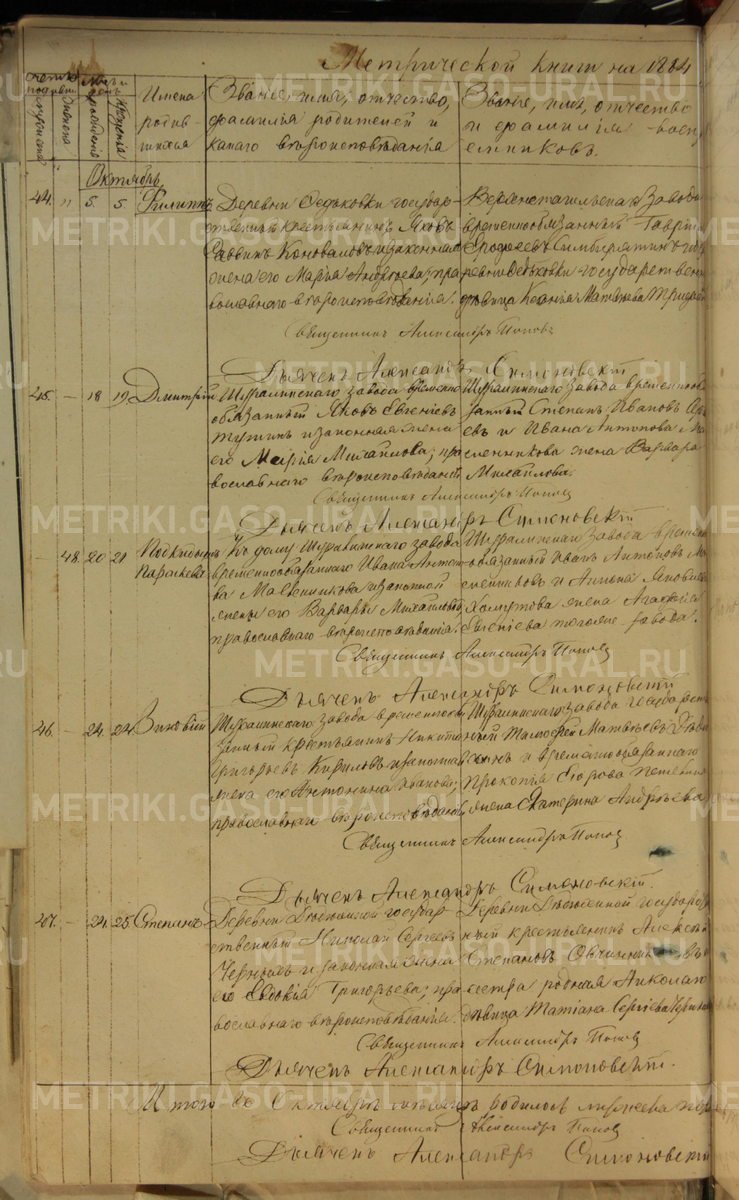 Метрической книги на 1864
Счетъ родившихся
Мѣсяцъ и день
Имена родившихся
Званіе, имя, отчество,
фамилія родителей и
какаго вѣроисповѣданія
Званіе, имя, отчество
и фамилія воспріемниковъ.
Октябрь
44. " 5. 5. Филиппъ
Деревни государ-
ственный крестьянинъ Яковъ
Саввинъ Коноваловъ и законная
жена его Марья Андреева; пра-
вославнаго вѣроисповѣданія.
завода
временнообязанный Гаври
государствен
дѣвица Ксенія Матвѣева
Священникъ Александръ Поповъ
Дьячекъ Александръ Симоновскій
45. — 18 19. Дмитрій
Шуралинскаго завода временно
обязанный Яковъ Евгеніевъ
и законная жена
его Марія Михайлова; пра-
вославнаго вѣроисповѣданія
Шуралинскаго завода временнооб
занный Степанъ Ивановъ
евъ и Ивана Антонова Ма
сленникова жена Варвара
Михайлова.
Священникъ Александръ Поповъ
Дьячекъ Александръ Симоновскій
— 48. 20 21 Подкидышъ
Параскева
Къ дому Шуралинскаго завода
временнообязаннаго Ивана Антоно-
ва Масленникова и законной
жены его Варвары Михайловой
православнаго вѣроисповѣданія.
Шуралинскаго завода времен
обязанный Иванъ Антоновъ Ма
сленниковъ и Яковлева
Хомутова жена Агафія
Евгеніева тогоже завода.
Священникъ Александръ Поповъ
Дьячекъ Александръ Симоновскій
46. — 24. 24 Зиновій
Шуралинскаго завода временнооб
занный крестьянинъ Никита
Григорьевъ Кириловъ и законная
жена его Антонина Иванова;
православнаго вѣроисповѣданія
Шуралинскаго завода государст
ный Тимофей Матвѣевъ
и временнообязаннаго
Прокопія Егорова
жена Екатерина Андреева
Священникъ Александръ Поповъ
Дьячекъ Александръ Симоновскій.
47. — 24. 25. Степанъ
Деревни государ-
ственный Николай Сергѣевъ
Черныхъ и законная жена
его Евдокія Григорьева; пра-
вославнаго вѣроисповѣданія.
Деревни государст
ный крестьянинъ Алексѣй
Степановъ Овчинниковъ
сестра родная Николая
дѣвица Татіана Сергѣева
Священникъ Александръ Поповъ
Дьячекъ Александръ Симоновскій.
Итого въ Октябрѣ мѣсяцѣ родилось мужеска
Священникъ Александръ Поповъ
Дьячекъ Александръ Симоновскій
METRIKI.GASO-URAL.RU